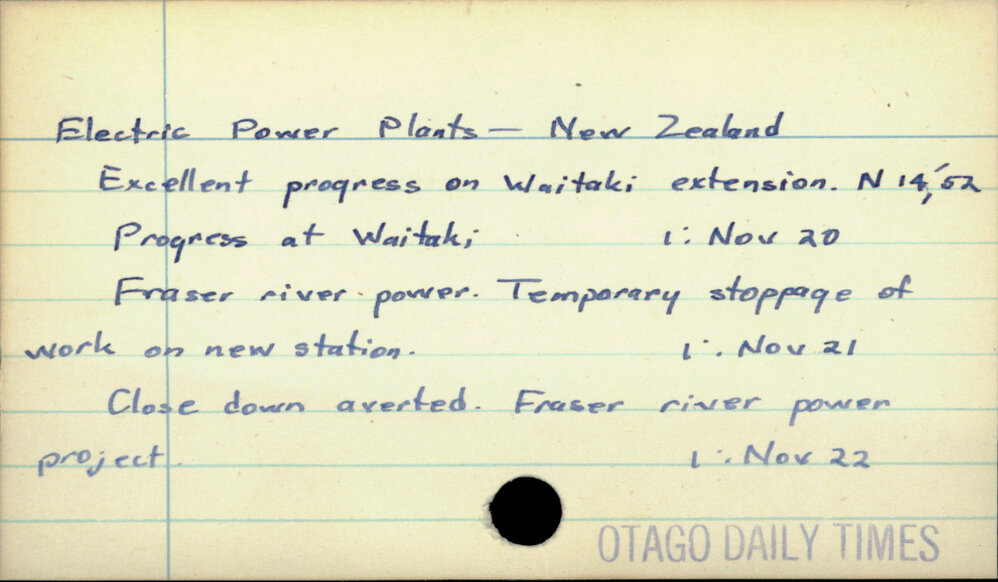 Electric Power Plants — New Zealand
Excellent progress on Waitaki extension. N 14, '52
Progress at Waitaki 1: Nov 20
Fraser river power. Temporary stoppage of
work on new station. 1: Nov 21
Close down averted. Fraser river power
project. 1: Nov 22
OTAGO DAILY TIMES